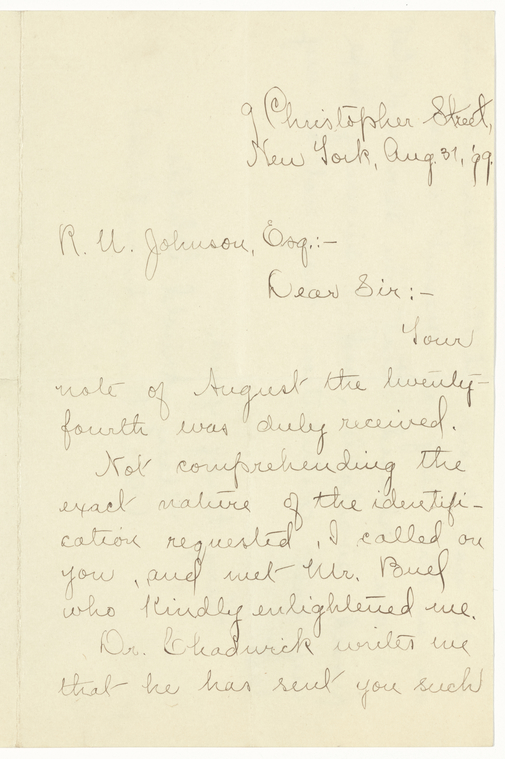 9 Christopher Street,
New York, Aug. 31, '99.
R. U. Johnson, Esq.:-
Dear Sir:-
Your
note of August the twenty-
fourth was duly received.
Not comprehending the
exact nature of the identifi-
cation requested, I called on
you, and met Mr. Buel
who kindly enlightened me.
Dr. Chadwick writes me
that he has sent you such